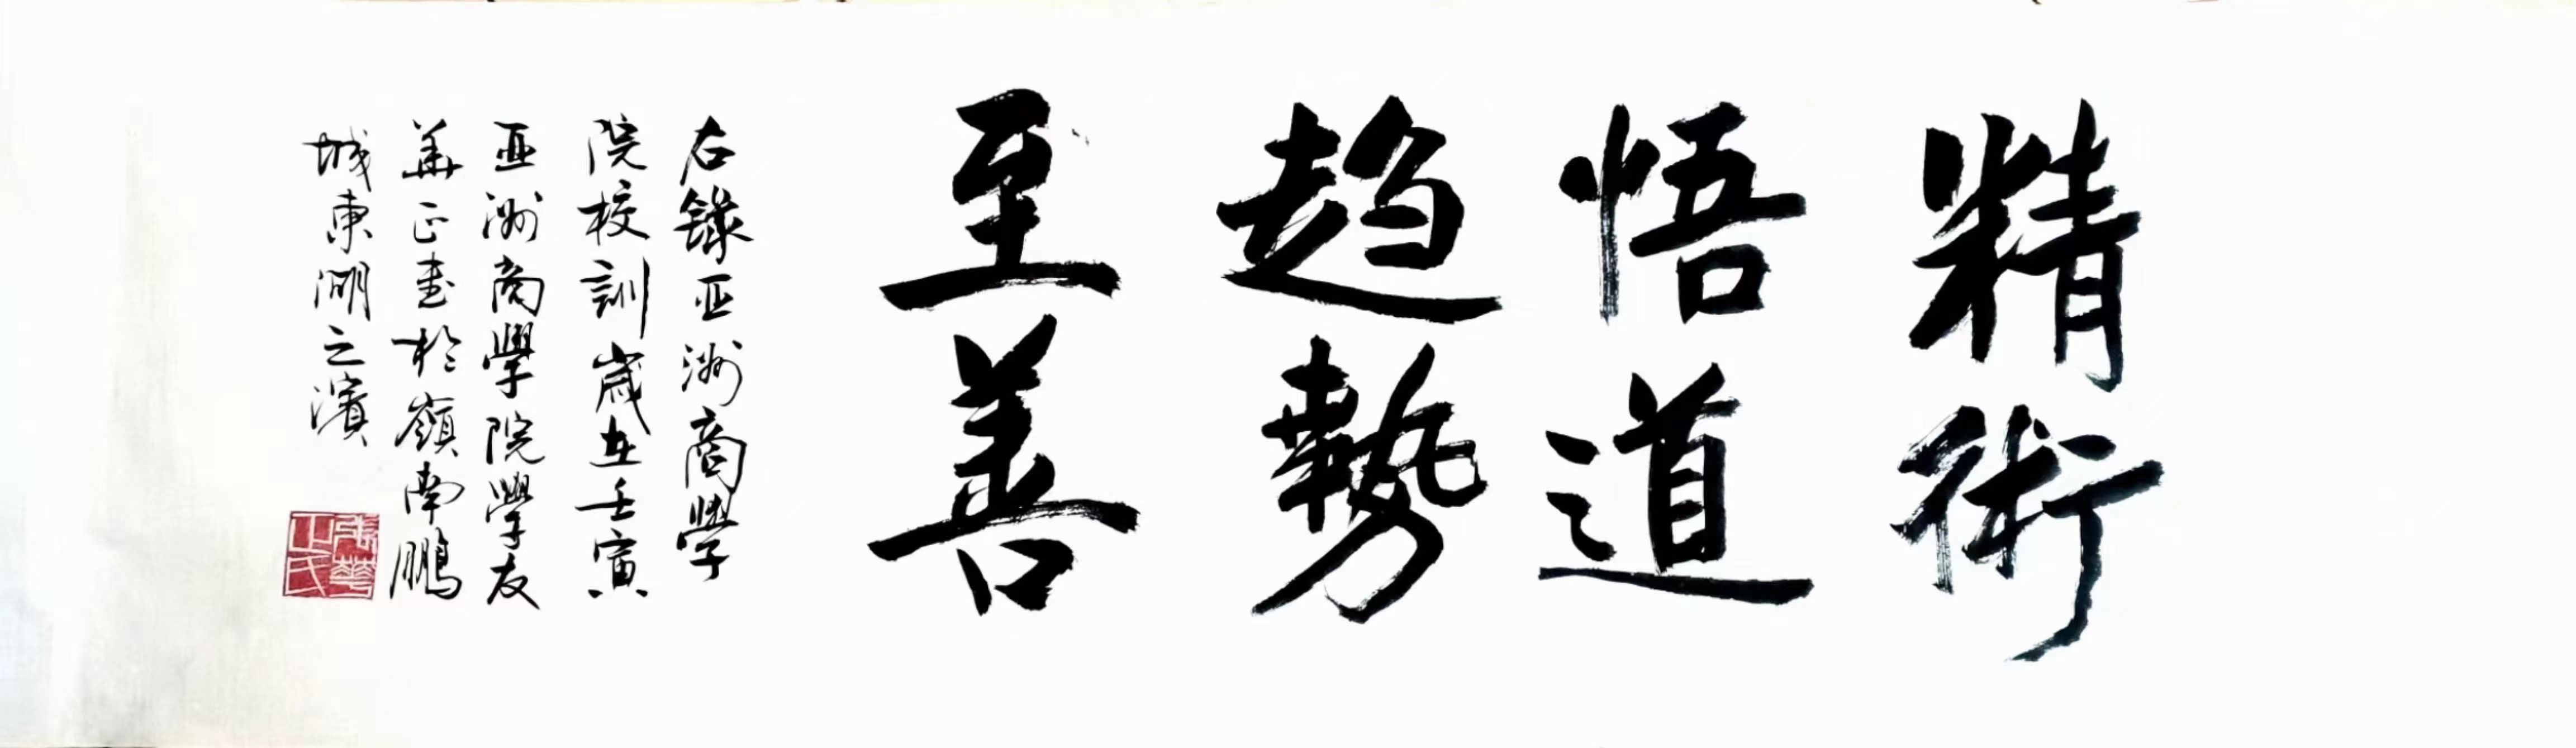 精術
悟道
趋勢
至善
右錄亚洲商學
院校訓歲在壬寅
亚洲商學院學友
華正書於嶺南鵬
城東湖之濱